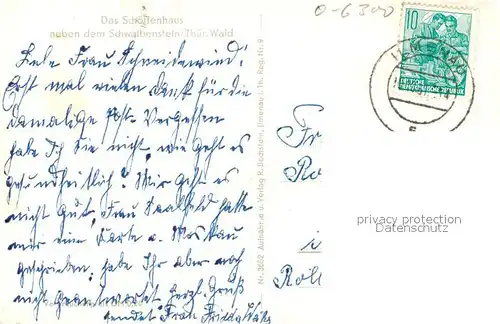 Das Schöffenhaus
neben dem Schwalbenstein Thür. Wald
0-6300
10
DEUTSCHE DEMOKRATISCHE REPUBLIK
ILMENAU
Liebe Frau Schneidewind!
Erst mal vielen Dank für die
damalige Post. Vergessen
habe ich Sie nicht, wie geht es
gesundheitlich? Mir geht es
nicht gut, Frau Saalfeld hatte
mir eine Karte v. Moskau
geschrieben, habe Ihr aber noch
nicht geantwortet herzl. Gruß
sendet Frau Frieda
Nr. 3652 Aufnahme u. Verlag R. Bechstein, Ilmenau i. Th. Reg.-Nr. 9
Fr
Ro
i
Röll
privacy protection
Datenschutz